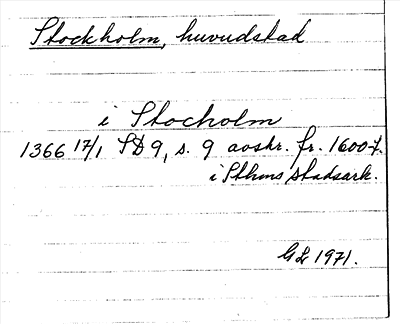 Stockholm, huvudstad
i Stocholm
1366 17/1 SD 9, s. 9 avskr. fr. 1600-t.
i Sthms stadsark.
GL 1971.